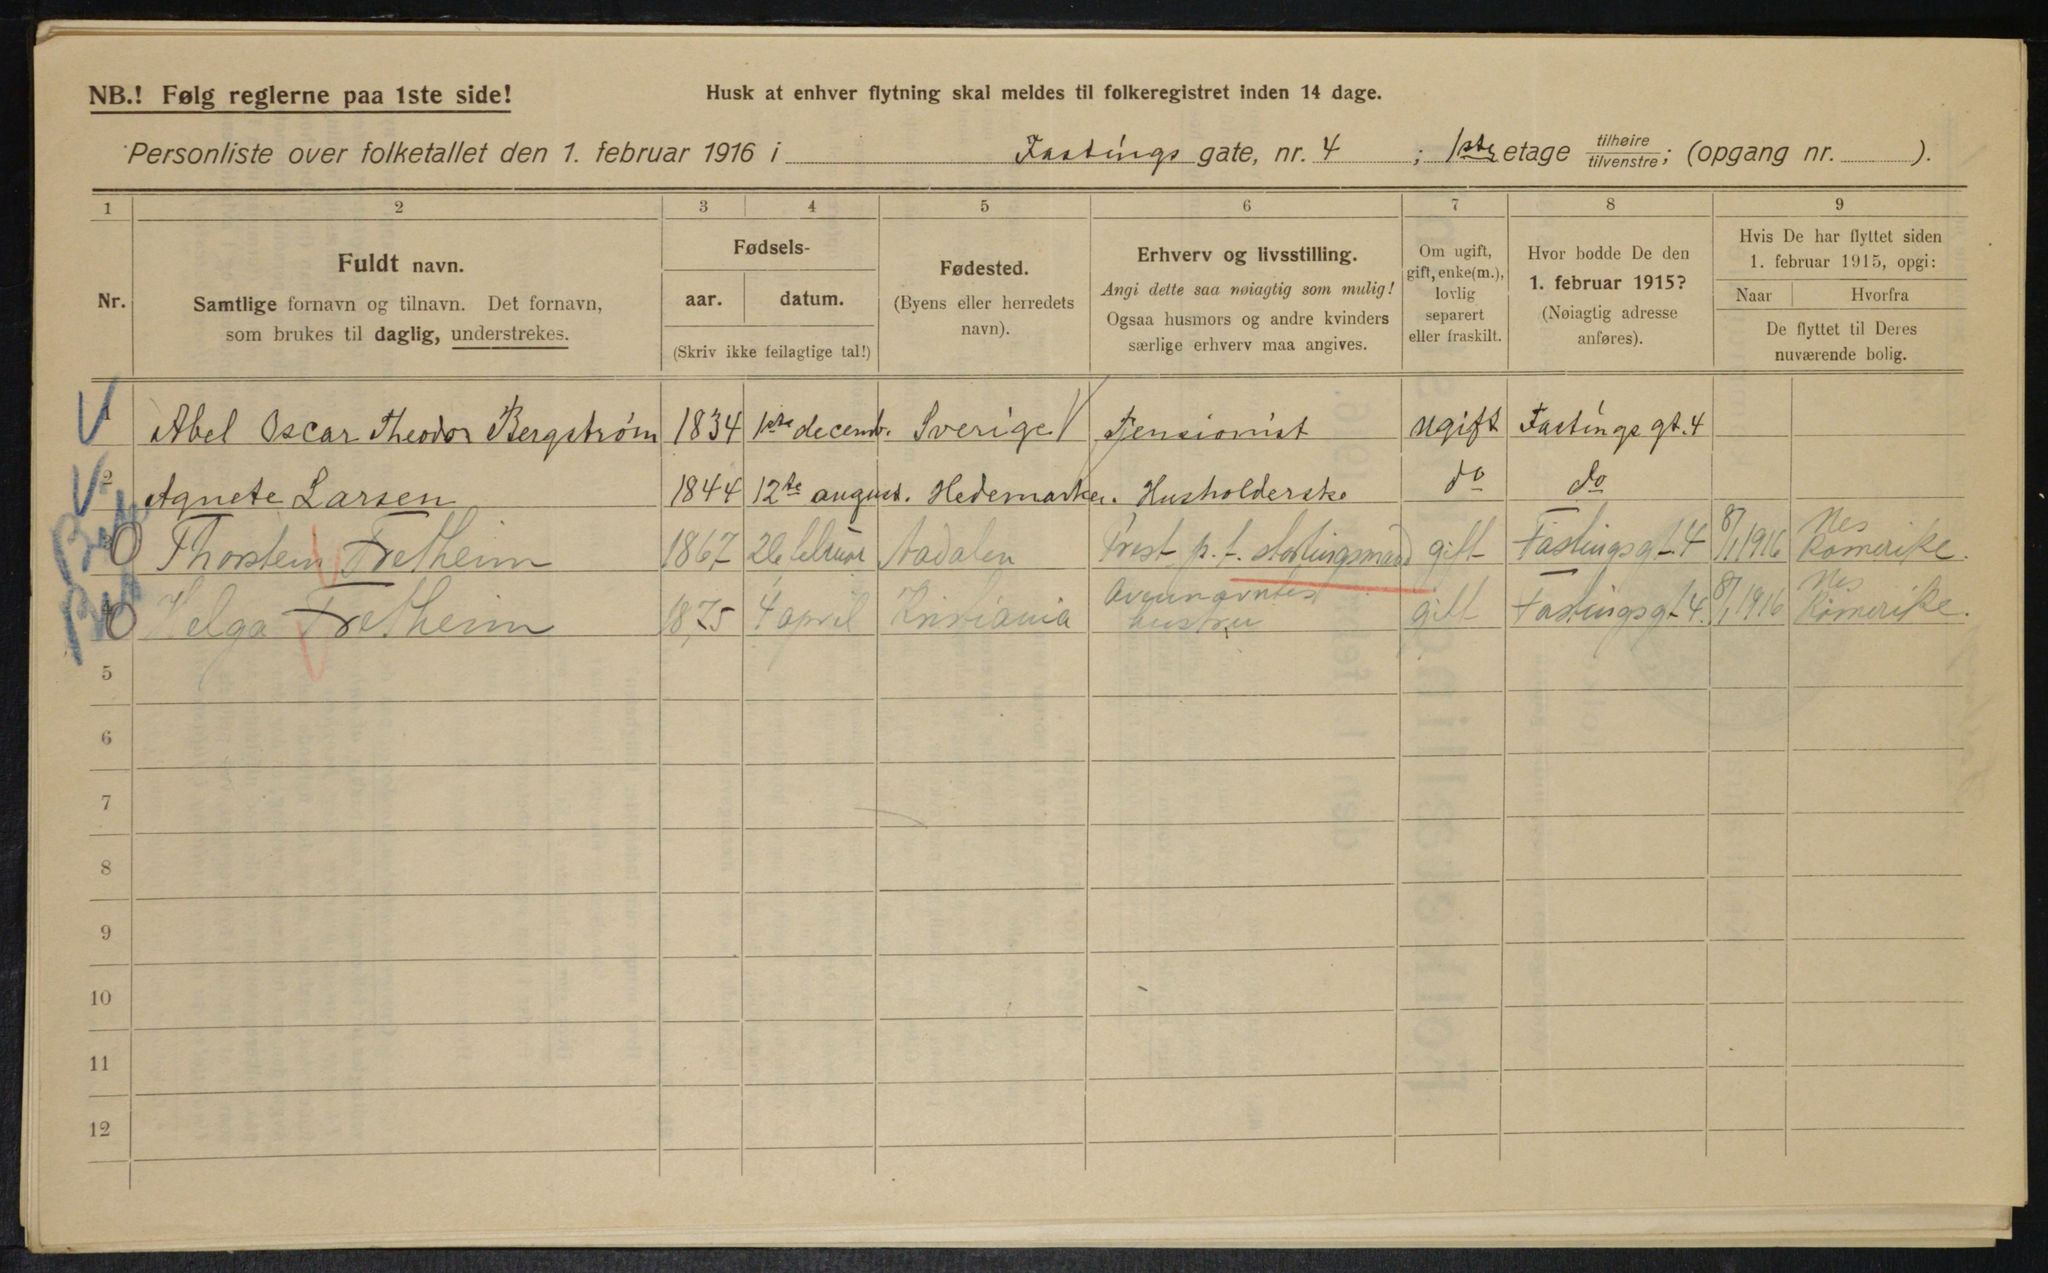 NB.! Følg reglerne paa 1ste side!
Husk at enhver flytning skal meldes til folkeregistret inden 14 dage.
Personliste over folketallet den 1. februar 1916 i Fastings gate, nr. 4 ; 1ste etage tilhøire/tilvenstre; (opgang nr. ).
1 2 3 4 5 6 7 8 9
Nr.
Fuldt navn.
Samtlige fornavn og tilnavn. Det fornavn,
som brukes til daglig, understrekes.
Fødsels-
aar. datum.
(Skriv ikke feilagtige tal!)
Fødested.
(Byens eller herredets
navn).
Erhverv og livsstilling.
Angi dette saa nøiagtig som mulig!
Ogsaa husmors og andre kvinders
særlige erhverv maa angives.
Om ugift,
gift, enke(m.),
lovlig
separert
eller fraskilt.
Hvor bodde De den
1. februar 1915?
(Nøiagtig adresse
anføres).
Hvis De har flyttet siden
1. februar 1915, opgi:
Naar Hvorfra
De flyttet til Deres
nuværende bolig.
1 Abel Oscar Theodor Bergstrøm 1834 1ste decemb. Sverige Pensionist ugift Fastings gt. 4
2 Agnete Larsen 1844 12te august. Hedemarken. Husholderske do do
Thorstein Fretheim 1867 26 februar Aadalen Prest p. t. stortingsmand gift Fastingsgt. 4 8/1 1916 Nes Romerike.
Helga Fretheim 1875 4 april Kristiania Ovennævntes hustru gift Fastingsgt 4. 8/1 1916 Nes Romerike.
5
6
7
8
9
10
11
12